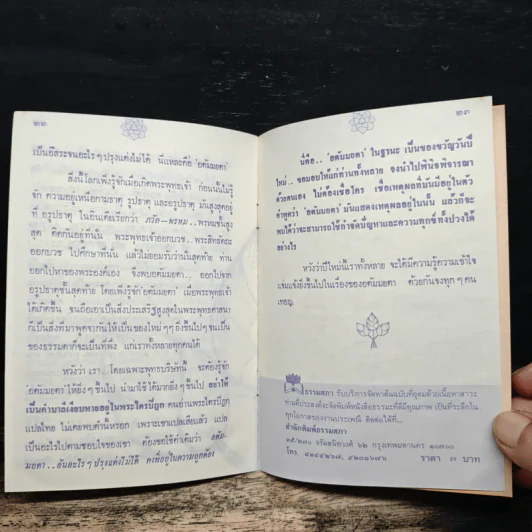 ๒๒
เป็นอิสระจนอะไร ๆ ปรุงแต่งไม่ได้ นี่แหละคือ 'อตัมมยตา'
สิ่งนี้โลกเพิ่งรู้จักเมื่อเกิดพระพุทธเจ้า ก่อนนั้นไม่รู้
จัก ความอยู่เหนือกามธาตุ รูปธาตุ และอรูปธาตุ มันสูงสุดอยู่
ที่ อรูปธาตุ ในอินเดียเรียกว่า พรหมชั้นสูง
สุด คิดกันอยู่ที่นั่น พระพุทธเจ้าออกบวช.. พระสิทธัตถะ
ออกบวช ไปศึกษากันที่นั่น แล้วไม่ยอมรับว่านั่นสุดท้าย ท่าน
ออกไปหาของพระองค์เอง จึงพบอตัมมยตา.. ออกไปจาก
อรูปธาตุชั้นสุดท้าย โลกเพิ่งรู้จัก 'อตัมมยตา' เมื่อพระพุทธเจ้า
ได้เกิดขึ้น จนถือเอาเป็นสิ่งประเสริฐสูงสุดในพระพุทธศาสนา
ก็เป็นสิ่งที่มาพูดจากันให้เป็นของใหม่ ๆๆ ยิ่งขึ้นไปๆ จนเป็น
ของธรรมดาก็จะเป็นที่พึ่ง แก่เราทั้งหลายทุกคนได้
หวังว่า เรา.. โดยเฉพาะพุทธบริษัทนี้ จะต้องรู้จัก
'อตัมมยตา' ให้ยิ่ง ๆ ขึ้นไป นำมาใช้ได้มากยิ่ง ๆ ขึ้นไป อย่าให้
เป็นคำบาลีเงียบหายอยู่ในพระไตรปิฎก คนอ่านพระไตรปิฎก
แปลไทย ไม่เคยพบคำนี้หรอก เพราะเขาแปลเสียแล้ว แปล
เป็นอะไรไปตามชอบใจของเขา ต้องขอใช้คำเดิมว่า อตัม-
มยตา.. อันอะไร ๆ ปรุงแต่งไม่ได้ คงที่อยู่ในความถูกต้อง
๒๓
นี่คือ.. 'อตัมมยตา' ในฐานะ เป็นของขวัญวันปี
ใหม่.. ขอมอบให้แก่ท่านทั้งหลาย จงนำไปพินิจพิจารณา
ด้วยตนเอง ไม่ต้องเชื่อใคร เชื่อเหตุผลที่มันมีอยู่ในตัว
คำพูดว่า 'อตัมมยตา' มันแสดงเหตุผลอยู่ในนั้น แล้วก็จะ
พบได้ว่าจะสามารถใช้กำจัดปัญหาและความทุกข์ทั้งปวงได้
อย่างไร
หวังว่าปีใหม่นี้เราทั้งหลาย จะได้มีความรู้ความเข้าใจ
แจ่มแจ้งยิ่งขึ้นไปในเรื่องของอตัมมยตา ด้วยกันจงทุก ๆ คน
เทอญ.
ธรรมสภา รับบริการจัดหาต้นฉบับที่อุดมด้วยเนื้อหาสาระ
ท่านที่ประสงค์จะจัดพิมพ์หนังสือธรรมะที่ดีมีคุณภาพ เป็นที่ระลึกใน
ทุกโอกาสของงานประเพณี ติดต่อได้ที่...
สำนักพิมพ์ธรรมสภา
๓๕/๒๗๐ จรัลสนิทวงศ์ ๖๒ กรุงเทพมหานคร ๑๐๗๐๐
โทร. ราคา ๗ บาท